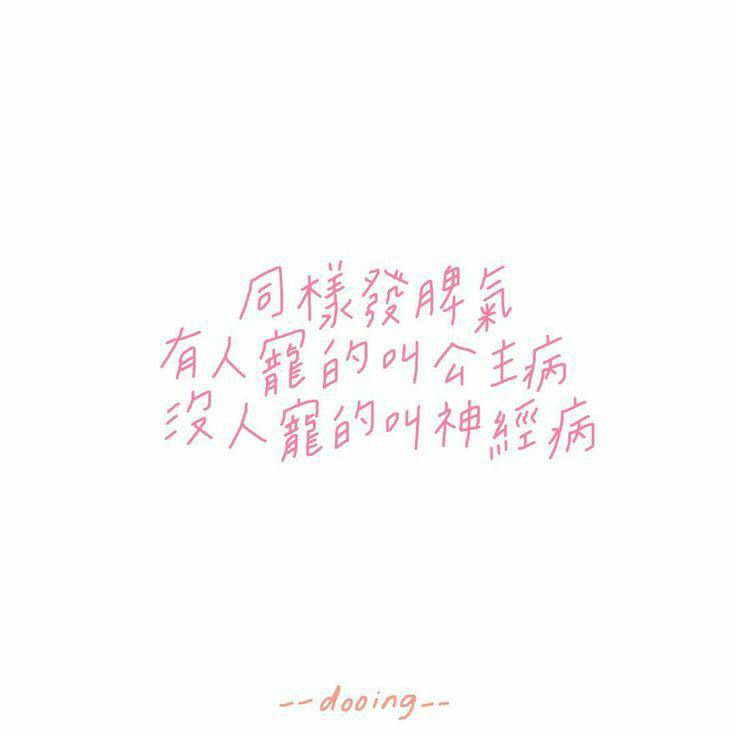 同樣發脾氣
有人寵的叫公主病
沒人寵的叫神經病
--dooing--